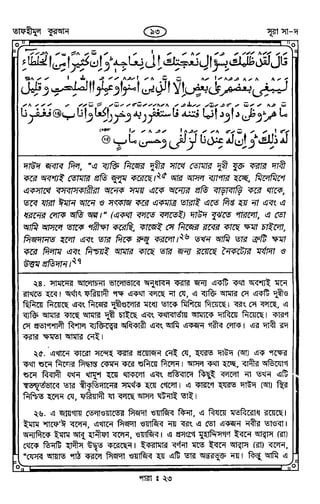 তাফহীমুল কুরআন
৯৩
সূরা সা-দ
قَالَ لَقَدْ ظَلَمَكَ بِسُؤَالِ نَعْجَتِكَ إِلَىٰ نِعَاجِهِ ۖ وَإِنَّ كَثِيرًا مِّنَ الْخُلَطَاءِ
لَيَبْغِي بَعْضُهُمْ عَلَىٰ بَعْضٍ إِلَّا الَّذِينَ آمَنُوا وَعَمِلُوا الصَّالِحَاتِ وَقَلِيلٌ
مَّا هُمْ ۗ وَظَنَّ دَاوُودُ أَنَّمَا فَتَنَّاهُ فَاسْتَغْفَرَ رَبَّهُ وَخَرَّ رَاكِعًا وَأَنَابَ ﴿٢٤﴾ فَغَفَرْنَا
لَهُ ذَٰلِكَ ۖ وَإِنَّ لَهُ عِندَنَا لَزُلْفَىٰ وَحُسْنَ مَآبٍ ﴿٢٥﴾
দাউদ জবাব দিল, "এ ব্যক্তি নিজের দুম্বীর সাথে তোমার দুম্বী যুক্ত করার দাবী
করে অবশ্যই তোমার প্রতি জুলুম করেছে।২৫ আর আসল ব্যাপার হচ্ছে, মিলেমিশে
একসাথে বসবাসকারীরা অনেক সময় একে অন্যের প্রতি বাড়াবাড়ি করে থাকে,
তবে যারা ঈমান আনে ও সৎকাজ করে একমাত্র তারাই এতে লিপ্ত হয় না এবং এ
ধরনের লোক অতি অল্প।" (একথা বলতে বলতেই) দাউদ বুঝতে পারলো, এ তো
আমি আসলে তাকে পরীক্ষা করেছি, কাজেই সে নিজের রবের কাছে ক্ষমা চাইলো,
সিজদানত হলো এবং তাঁর দিকে রুজু করলো।২৬ তখন আমি তার ত্রুটি ক্ষমা
করে দিলাম এবং নিশ্চয়ই আমার কাছে তার জন্য রয়েছে নৈকট্যের মর্যাদা ও
উত্তম প্রতিদান।২৭
২৪. সামনের আলোচনা ভালোভাবে অনুধাবন করার জন্য একটি কথা অবশ্যই মনে
রাখতে হবে। অর্থাৎ ফরিয়াদী পক্ষ একথা বলছে না যে, এ ব্যক্তি আমার সে একটি দুম্বীও
ছিনিয়ে নিয়েছে এবং নিজের দুম্বীগুলোর মধ্যে তাকে মিশিয়ে দিয়েছে। বরং সে বলছে, এ
ব্যক্তি আমার কাছে আমার দুম্বী চাইছে এবং কথাবার্তায় আমাকে দাবিয়ে নিয়েছে। কারণ
সে প্রতাপশালী বিশাল ব্যক্তিত্বের অধিকারী এবং আমি একজন গরীব লোক। এর দাবী রদ
করার ক্ষমতা আমার নেই।
২৫. এখানে কারো সন্দেহ করার প্রয়োজন নেই যে, হযরত দাউদ (আ) এক পক্ষের
কথা শুনে নিজের সিদ্ধান্ত কেমন করে শুনিয়ে দিলেন। আসল কথা হচ্ছে, বাদীর অভিযোগ
শুনে বিবাদী যখন খামুশ হয়ে থাকলো এবং প্রতিবাদে কিছুই বললো না তখন এটি
স্বতষ্ফূর্তভাবে তার স্বীকৃতিদানের সমর্থক হয়ে গেলো। এ কারণে হযরত দাউদ (আ) স্থির
নিশ্চিত হলেন যে, ফরিয়াদী যা বলছে আসল ঘটনাই তাই।
২৬. এ জায়গায় তেলাওয়াতের সিজদা ওয়াজিব কিনা, এ বিষয়ে মতবিরোধ রয়েছে।
ইমাম শাফে'ঈ বলেন, এখানে সিজদা ওয়াজিব নয় বরং এ তো একজন নবীর তাওবা।
অন্যদিকে ইমাম আবু হানীফা বলেন, ওয়াজিব। এ প্রসংগে মুহাদ্দিসগণ ইবনে আব্বাস (রা)
থেকে তিনটি হাদীস উদ্ধৃত করেছেন। ইকরামার বর্ণনা মতে ইবনে আব্বাস (রা) বলেন,
"যেসব আয়াত পাঠ করলে সিজদা ওয়াজিব হয় এটি তার অন্তরভুক্ত নয়। কিন্তু আমি এ
পারা : ২৩